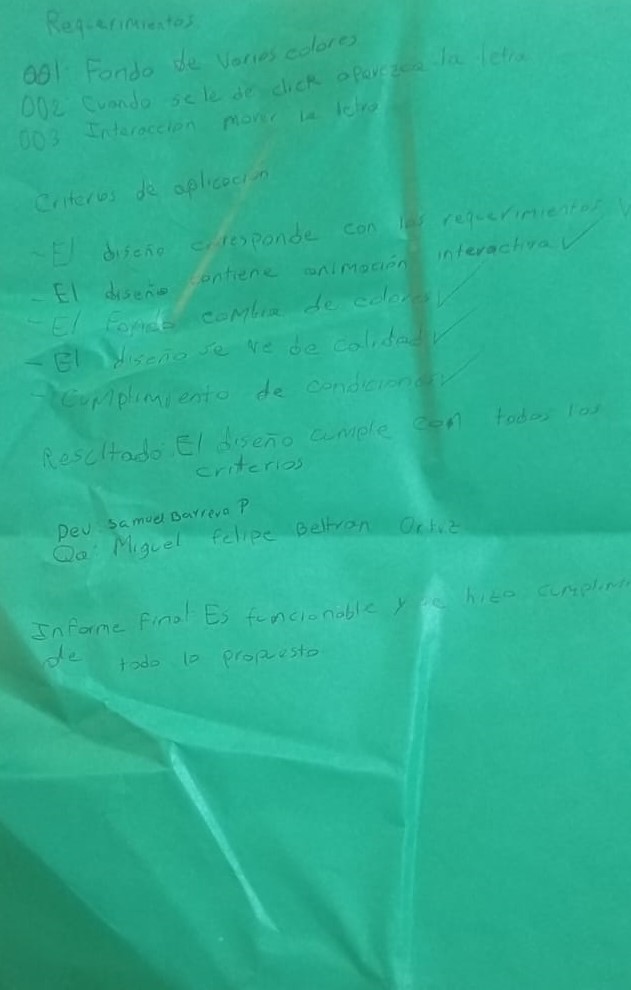 Requerimientos
001 Fondo de varios colores
002 Cuando se le de click aparezca la letra
003 Interaccion mover la letra
Criterios de aplicación
- El diseño corresponde con los requerimientos ✓
- El diseño contiene animación interactiva ✓
- El Fondo cambia de colores ✓
- El diseño se ve de calidad ✓
- Cumplimiento de condiciones ✓
Resultado: El diseño cumple con todos los
criterios
Dev: Samuel Barrera P
Qa: Miguel Felipe Beltran Ortiz
Informe Final: Es funcionable y se hizo
de todo lo propuesto